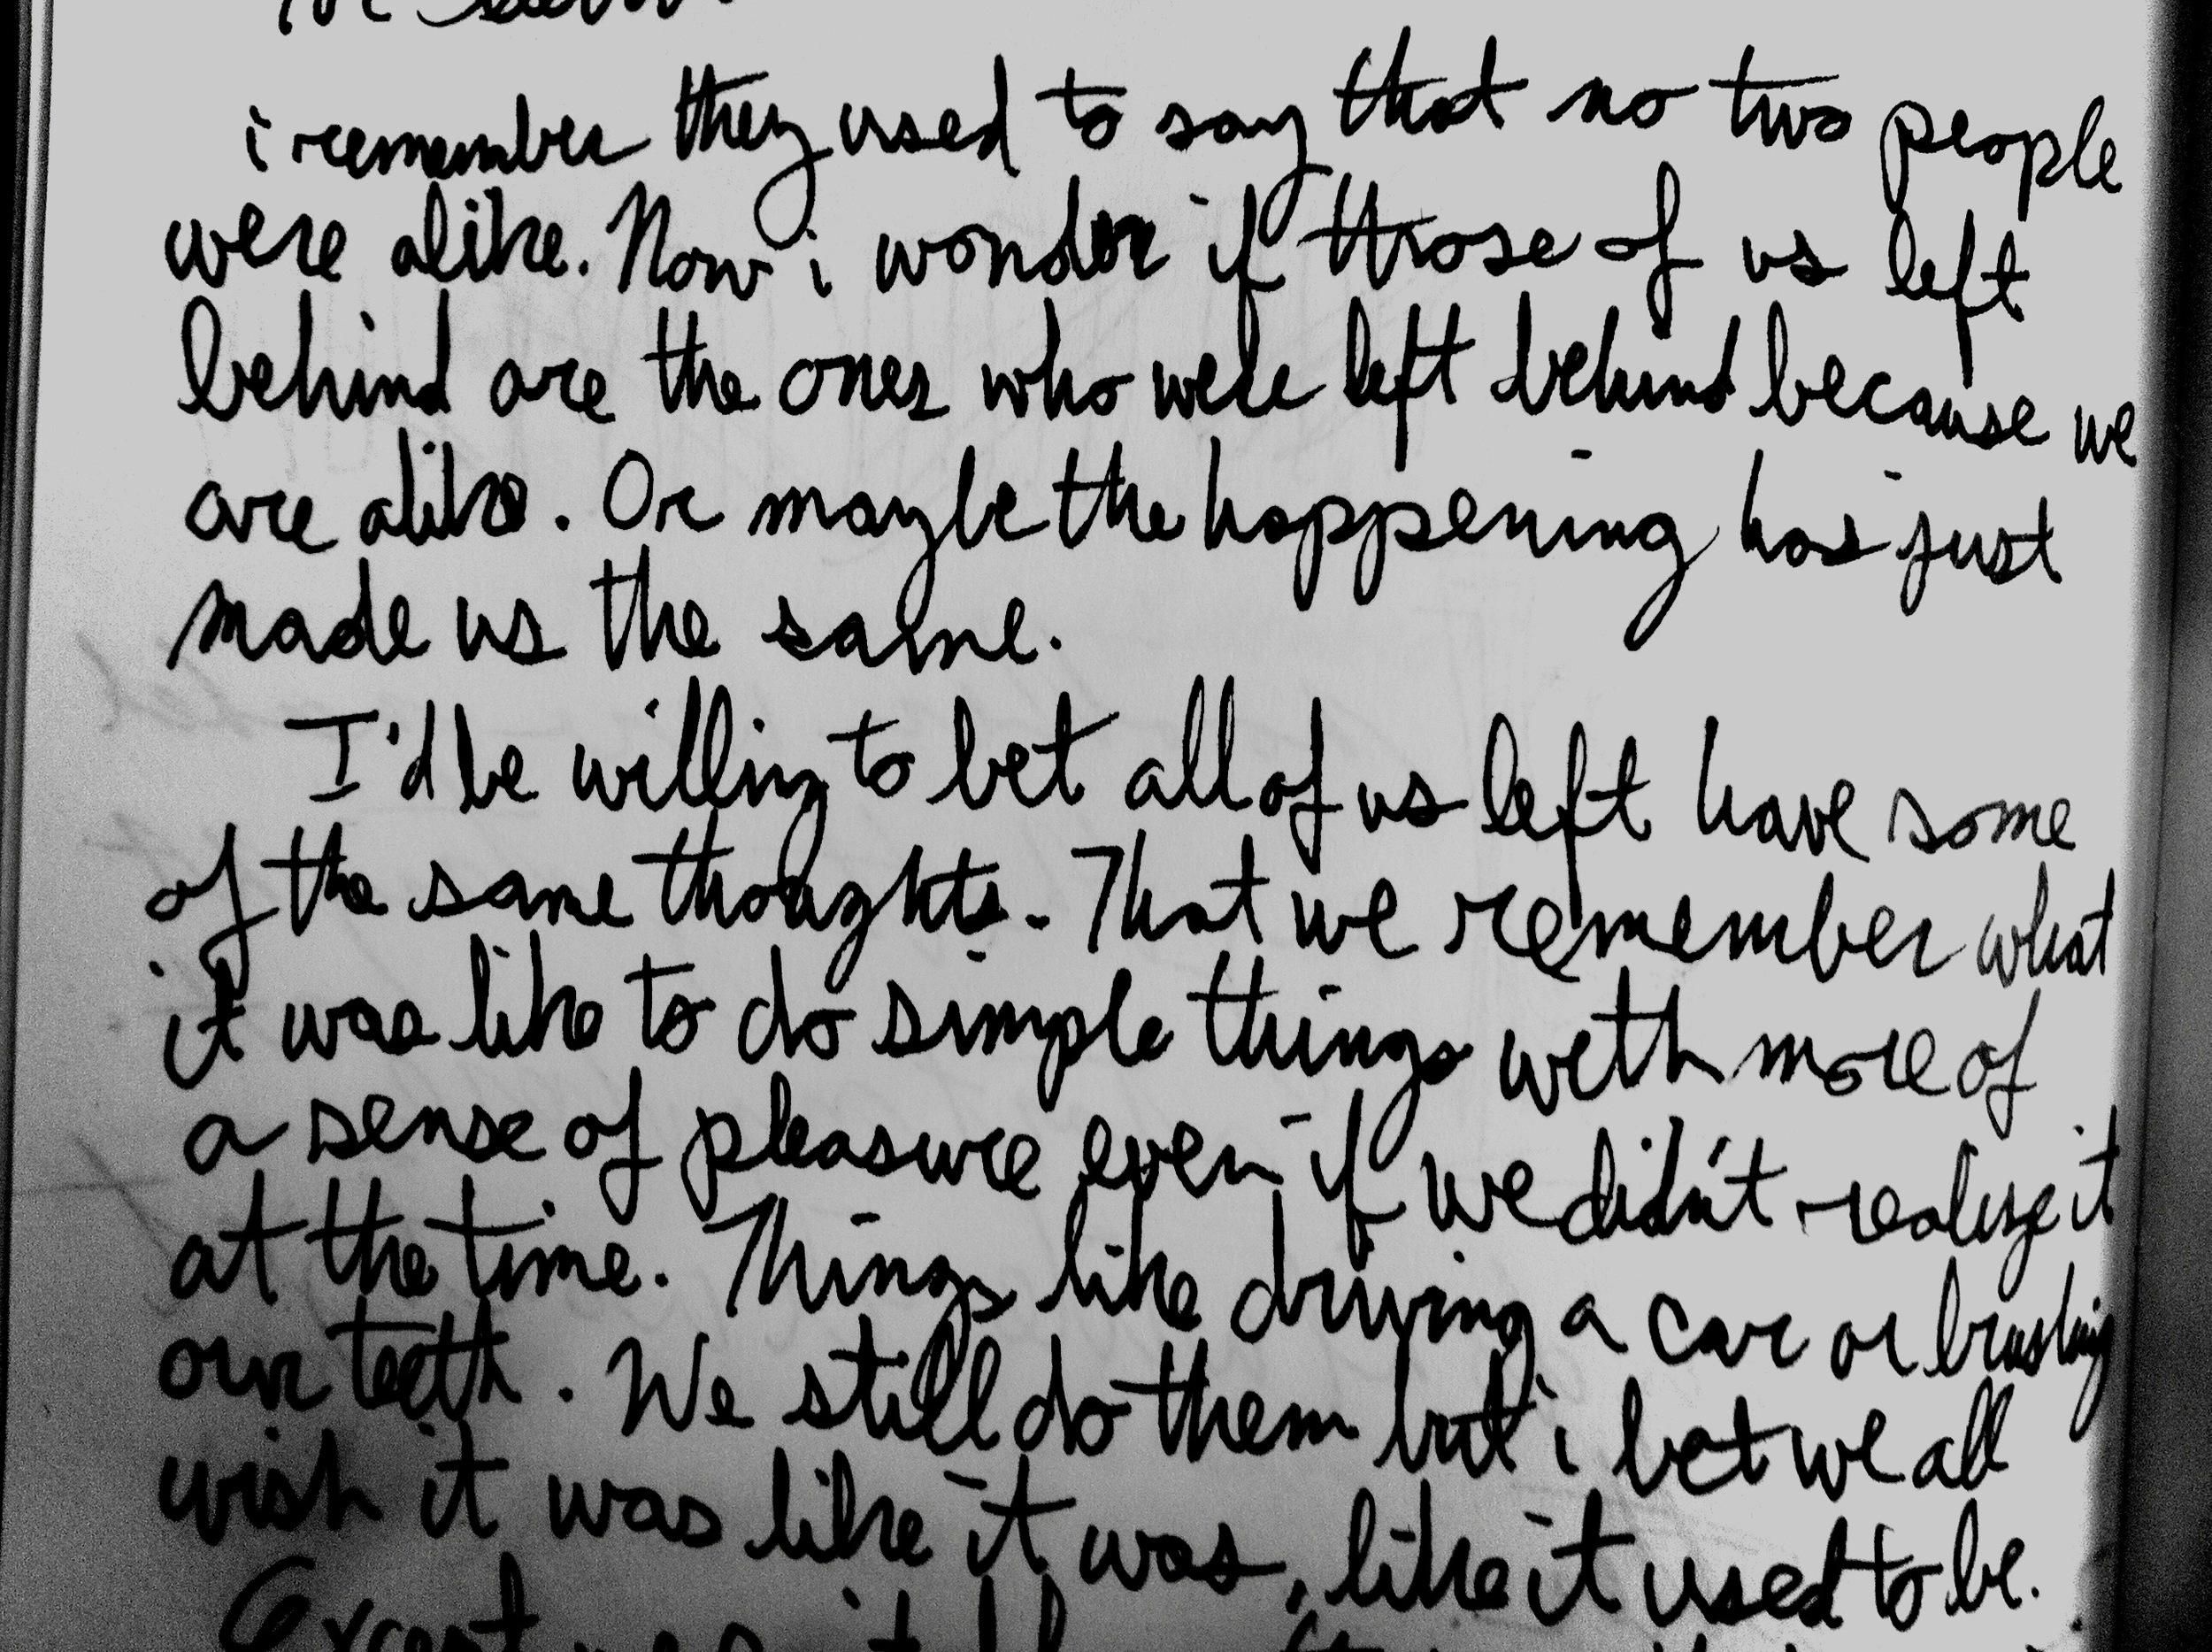 i remember they used to say that no two people
were alike. Now i wonder if those of us left
behind are the ones who were left behind because we
are alike. Or maybe the happening has just
made us the same.
I'd be willing to bet all of us left have some
of the same thoughts. That we remember what
it was like to do simple things with more of
a sense of pleasure even if we didn't realize it
at the time. Things like driving a car or brushing
our teeth. We still do them but i bet we all
wish it was like it was, like it used to be.
Except